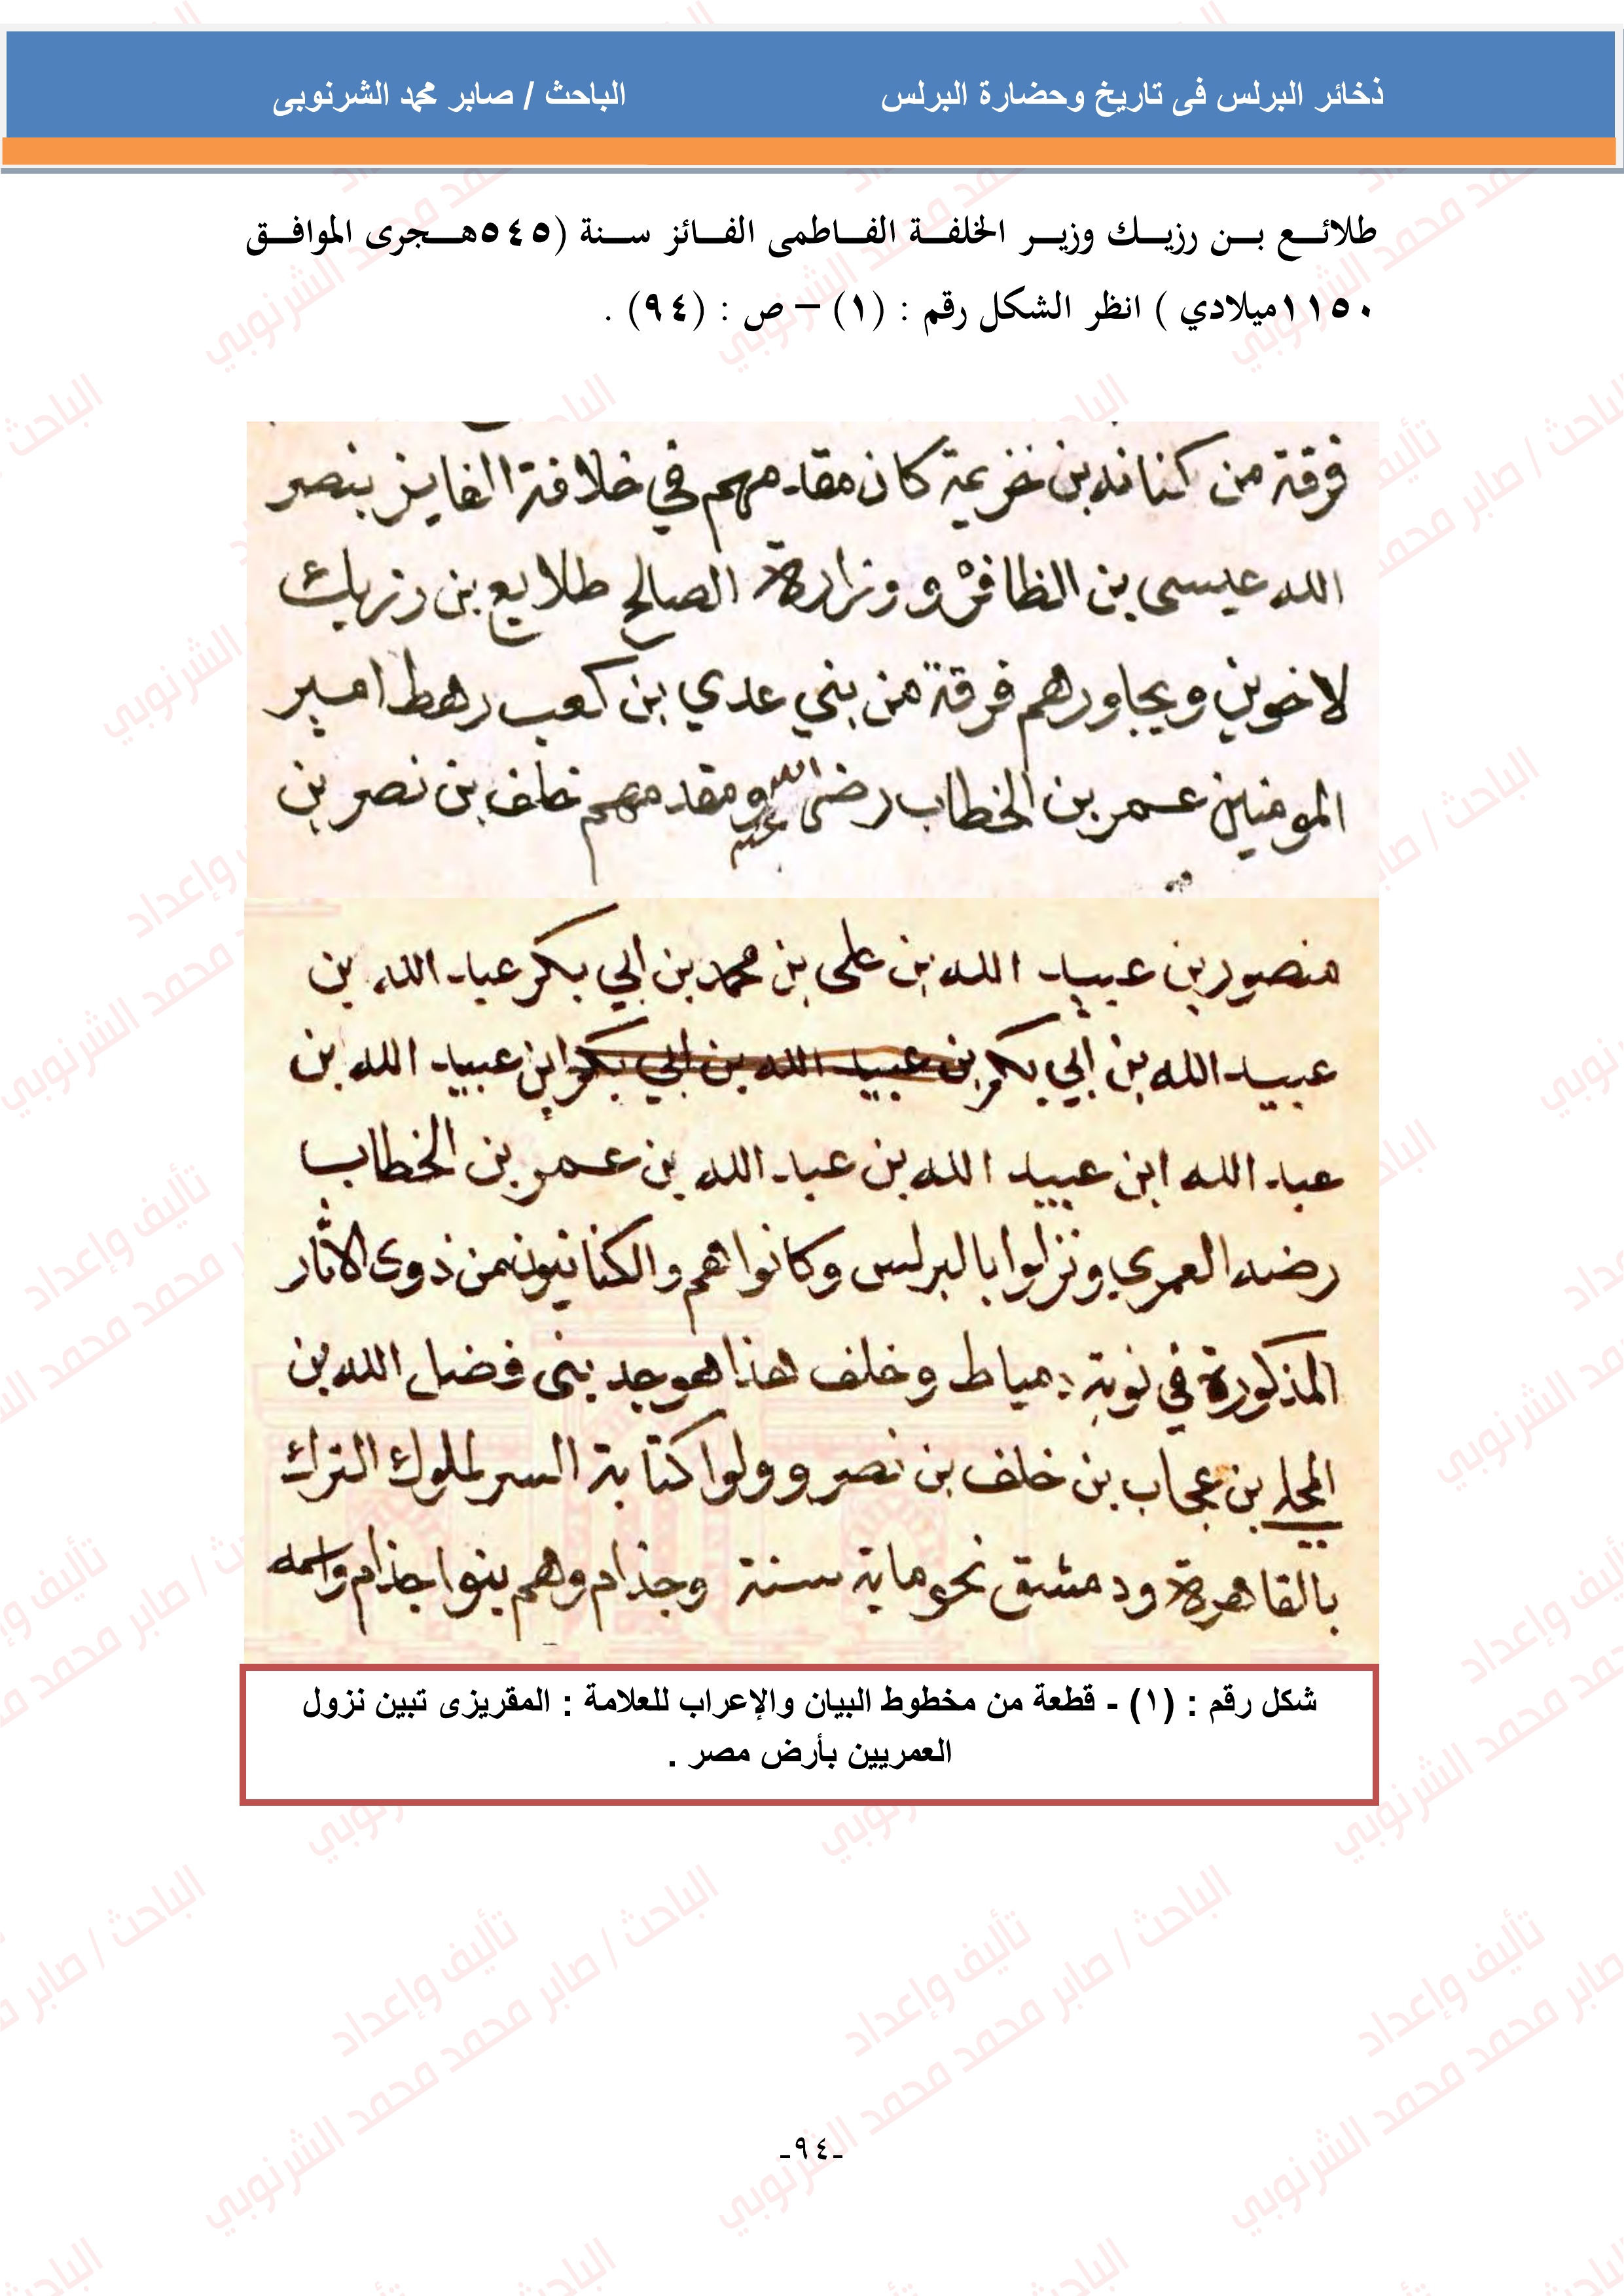 ذخائر البرلس فى تاريخ وحضارة البرلس الباحث / صابر محمد الشرنوبى
طلائع بن رزيك وزير الخلفة الفاطمى الفائز سنة (٥٤٥هجرى الموافق
١١٥٠ميلادي ) انظر الشكل رقم : (١) – ص : (٩٤) .
فرقة من كنانه بن خزيمة كان مقدمهم في خلافة الفايز بنصر
الله عيسى بن الظافر ووزارة الصالح طلايع بن رزيك
لاخوين ويجاورهم فرقة من بني عدي بن كعب رهط امير
المومنين عمر بن الخطاب رضى الله عنه ومقدمهم خلف بن نصر بن
منصور بن عبيد الله بن على بن محمد بن ابي بكر عبد الله بن
عبيد الله بن ابي بكر بن عبيد الله بن ابي بكر ابن عبيد الله بن
عبد الله ابن عبيد الله بن عبد الله بن عمر بن الخطاب
رضه العمري ونزلوا بالبرلس وكانوا هم والكنانيون من ذوى الاثار
المذكورة في نوبة دمياط وخلف هذا هو جد بنى فضل الله بن
المجلد بن عجاب بن خلف بن نصر وولوا كتابة السر لملوك الترك
بالقاهرة ودمشق نحو ماية سنة وجذام وهم بنوا جذام واسمه
شكل رقم : (١) - قطعة من مخطوط البيان والإعراب للعلامة : المقريزى تبين نزول
العمريين بأرض مصر .
-٩٤-
تأليف وإعداد
الباحث / صابر محمد محمد الشرنوبي